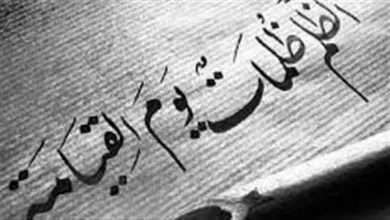 الظلم ظلمات يَومَ القِيَامَة